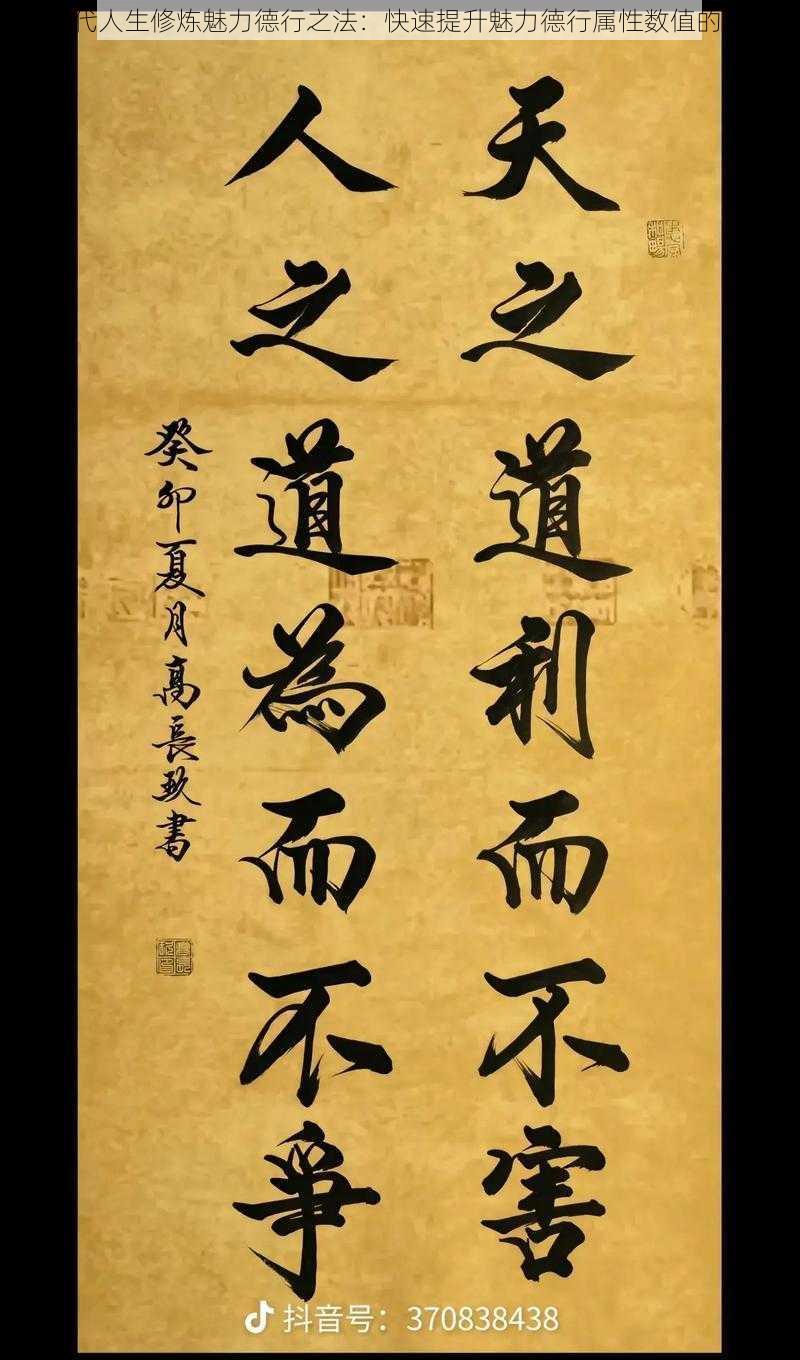 代人生修炼魅力德行之法：快速提升魅力德行属性数值的
天之道利而不害
人之道為而不爭
癸卯夏月高長玖書
抖音号：370838438